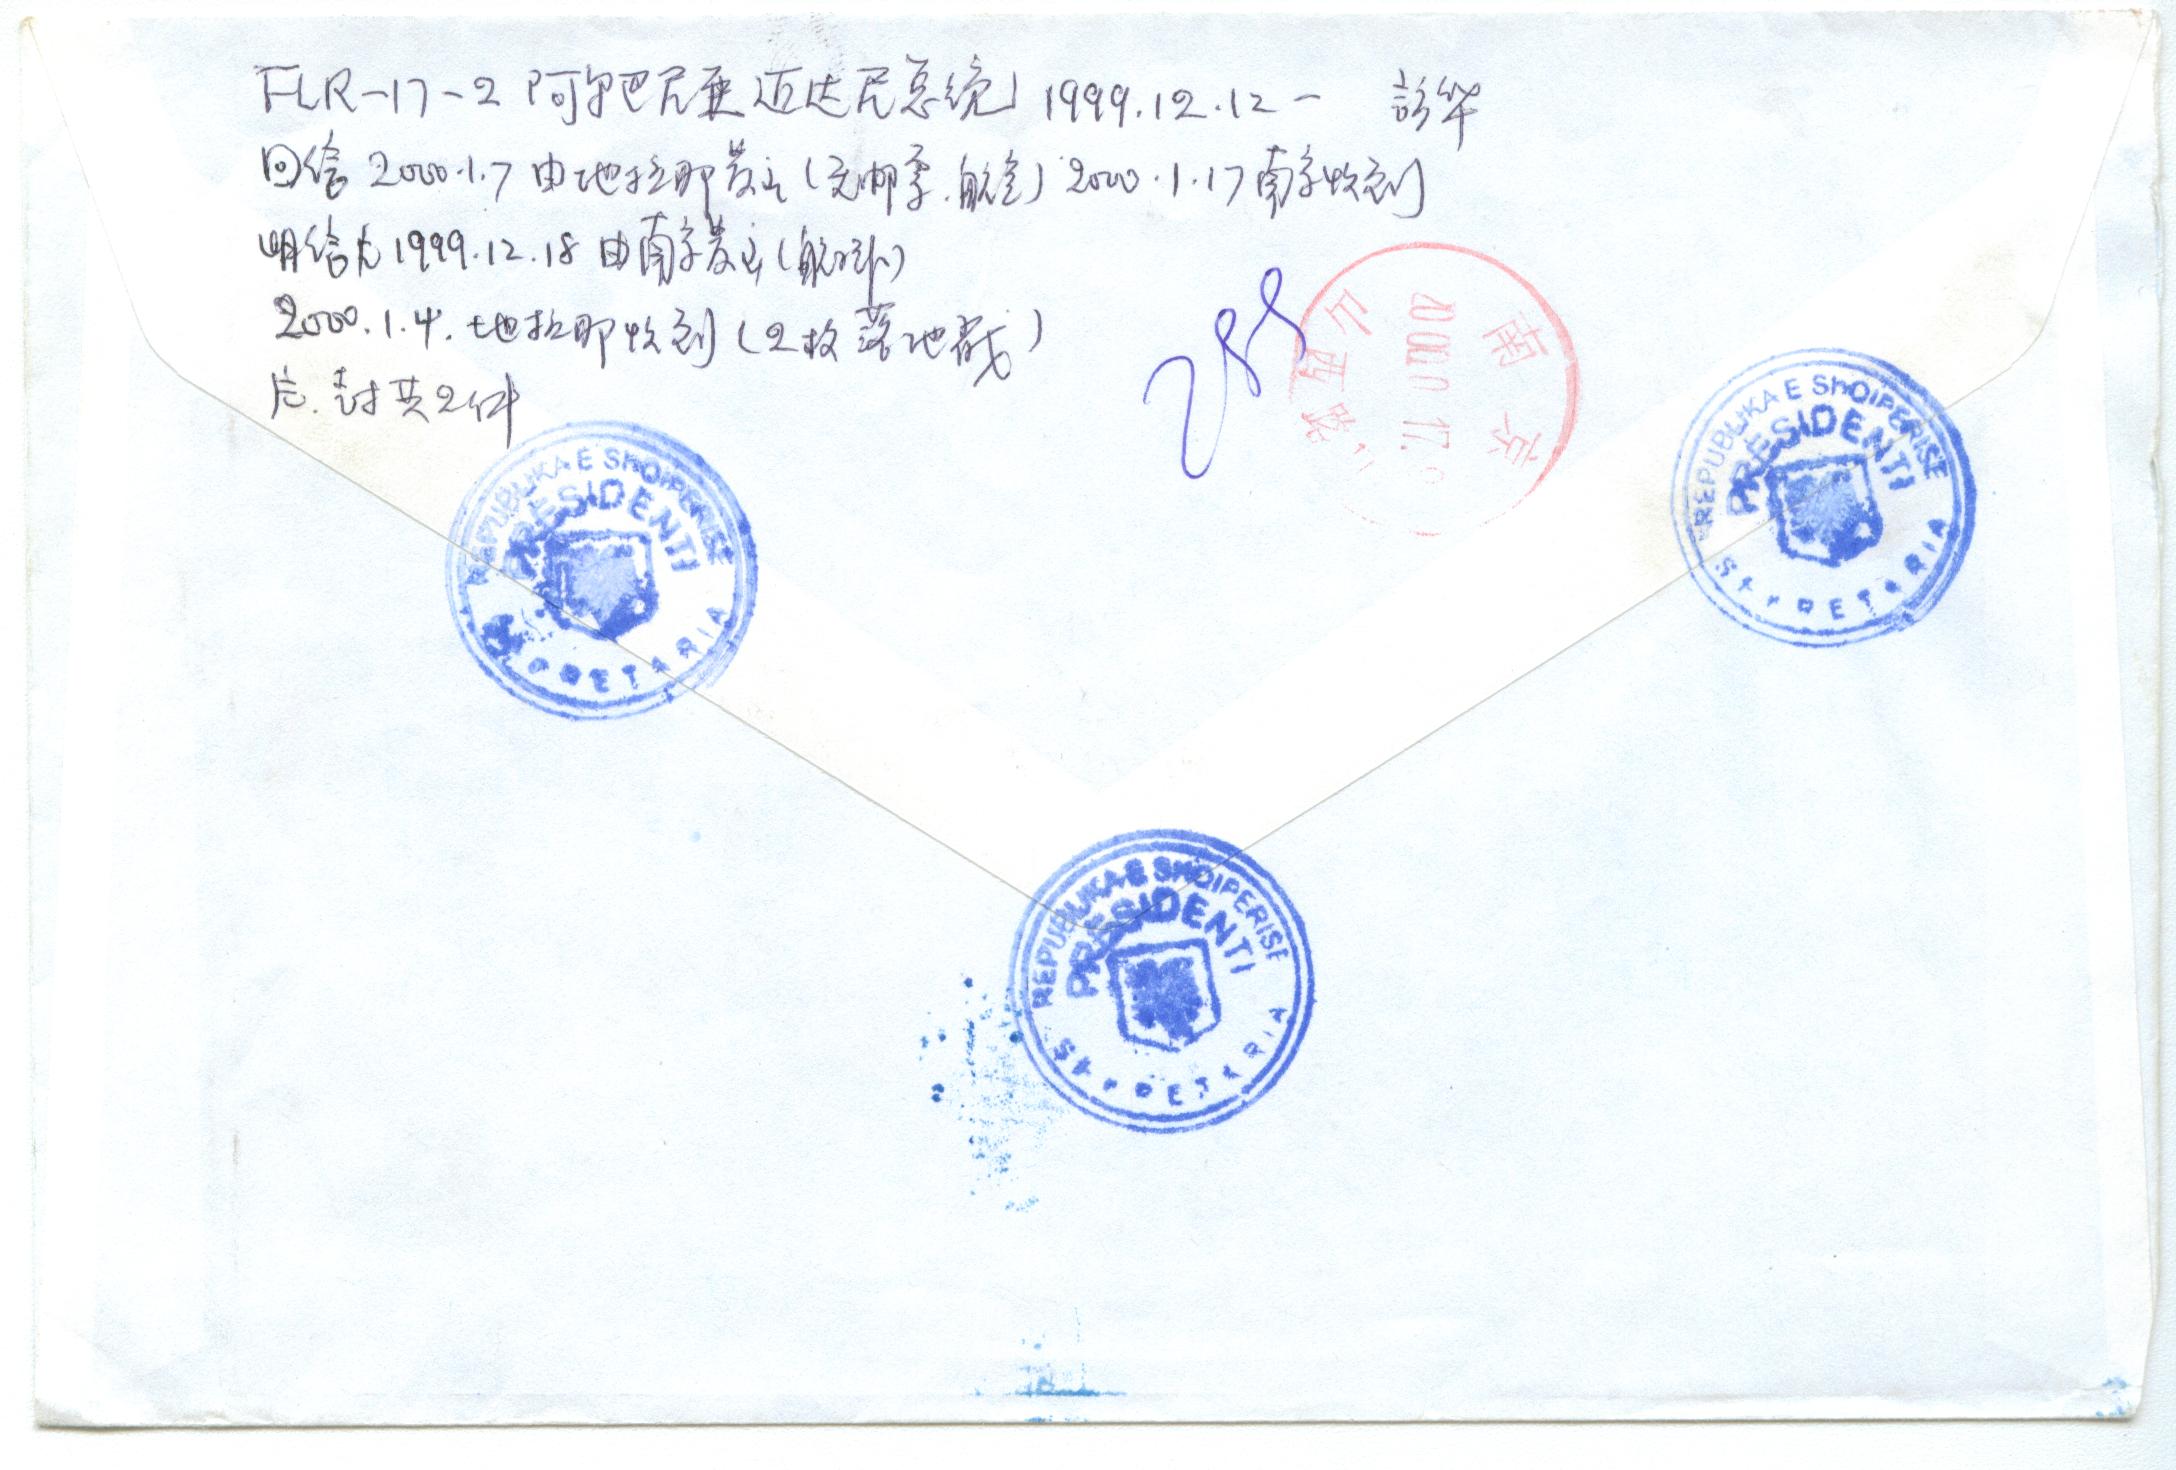 FLR-17-2 阿尔巴尼亚迈达尼总统 1999.12.12一 彭华
回信 2000.1.7 由地拉那发出(无邮资.航空) 2000.1.17南京收到
明信片 1999.12.18 由南京发出(航邮)
2000.1.4.地拉那收到(2枚落地戳)
片.封共2件
南京
2000.01.17.
REPUBLIKA E SHQIPERISE
PRESIDENTI
SEKRETARIA
REPUBLIKA E SHQIPERISE
PRESIDENTI
SEKRETARIA
REPUBLIKA E SHQIPERISE
PRESIDENTI
SEKRETARIA